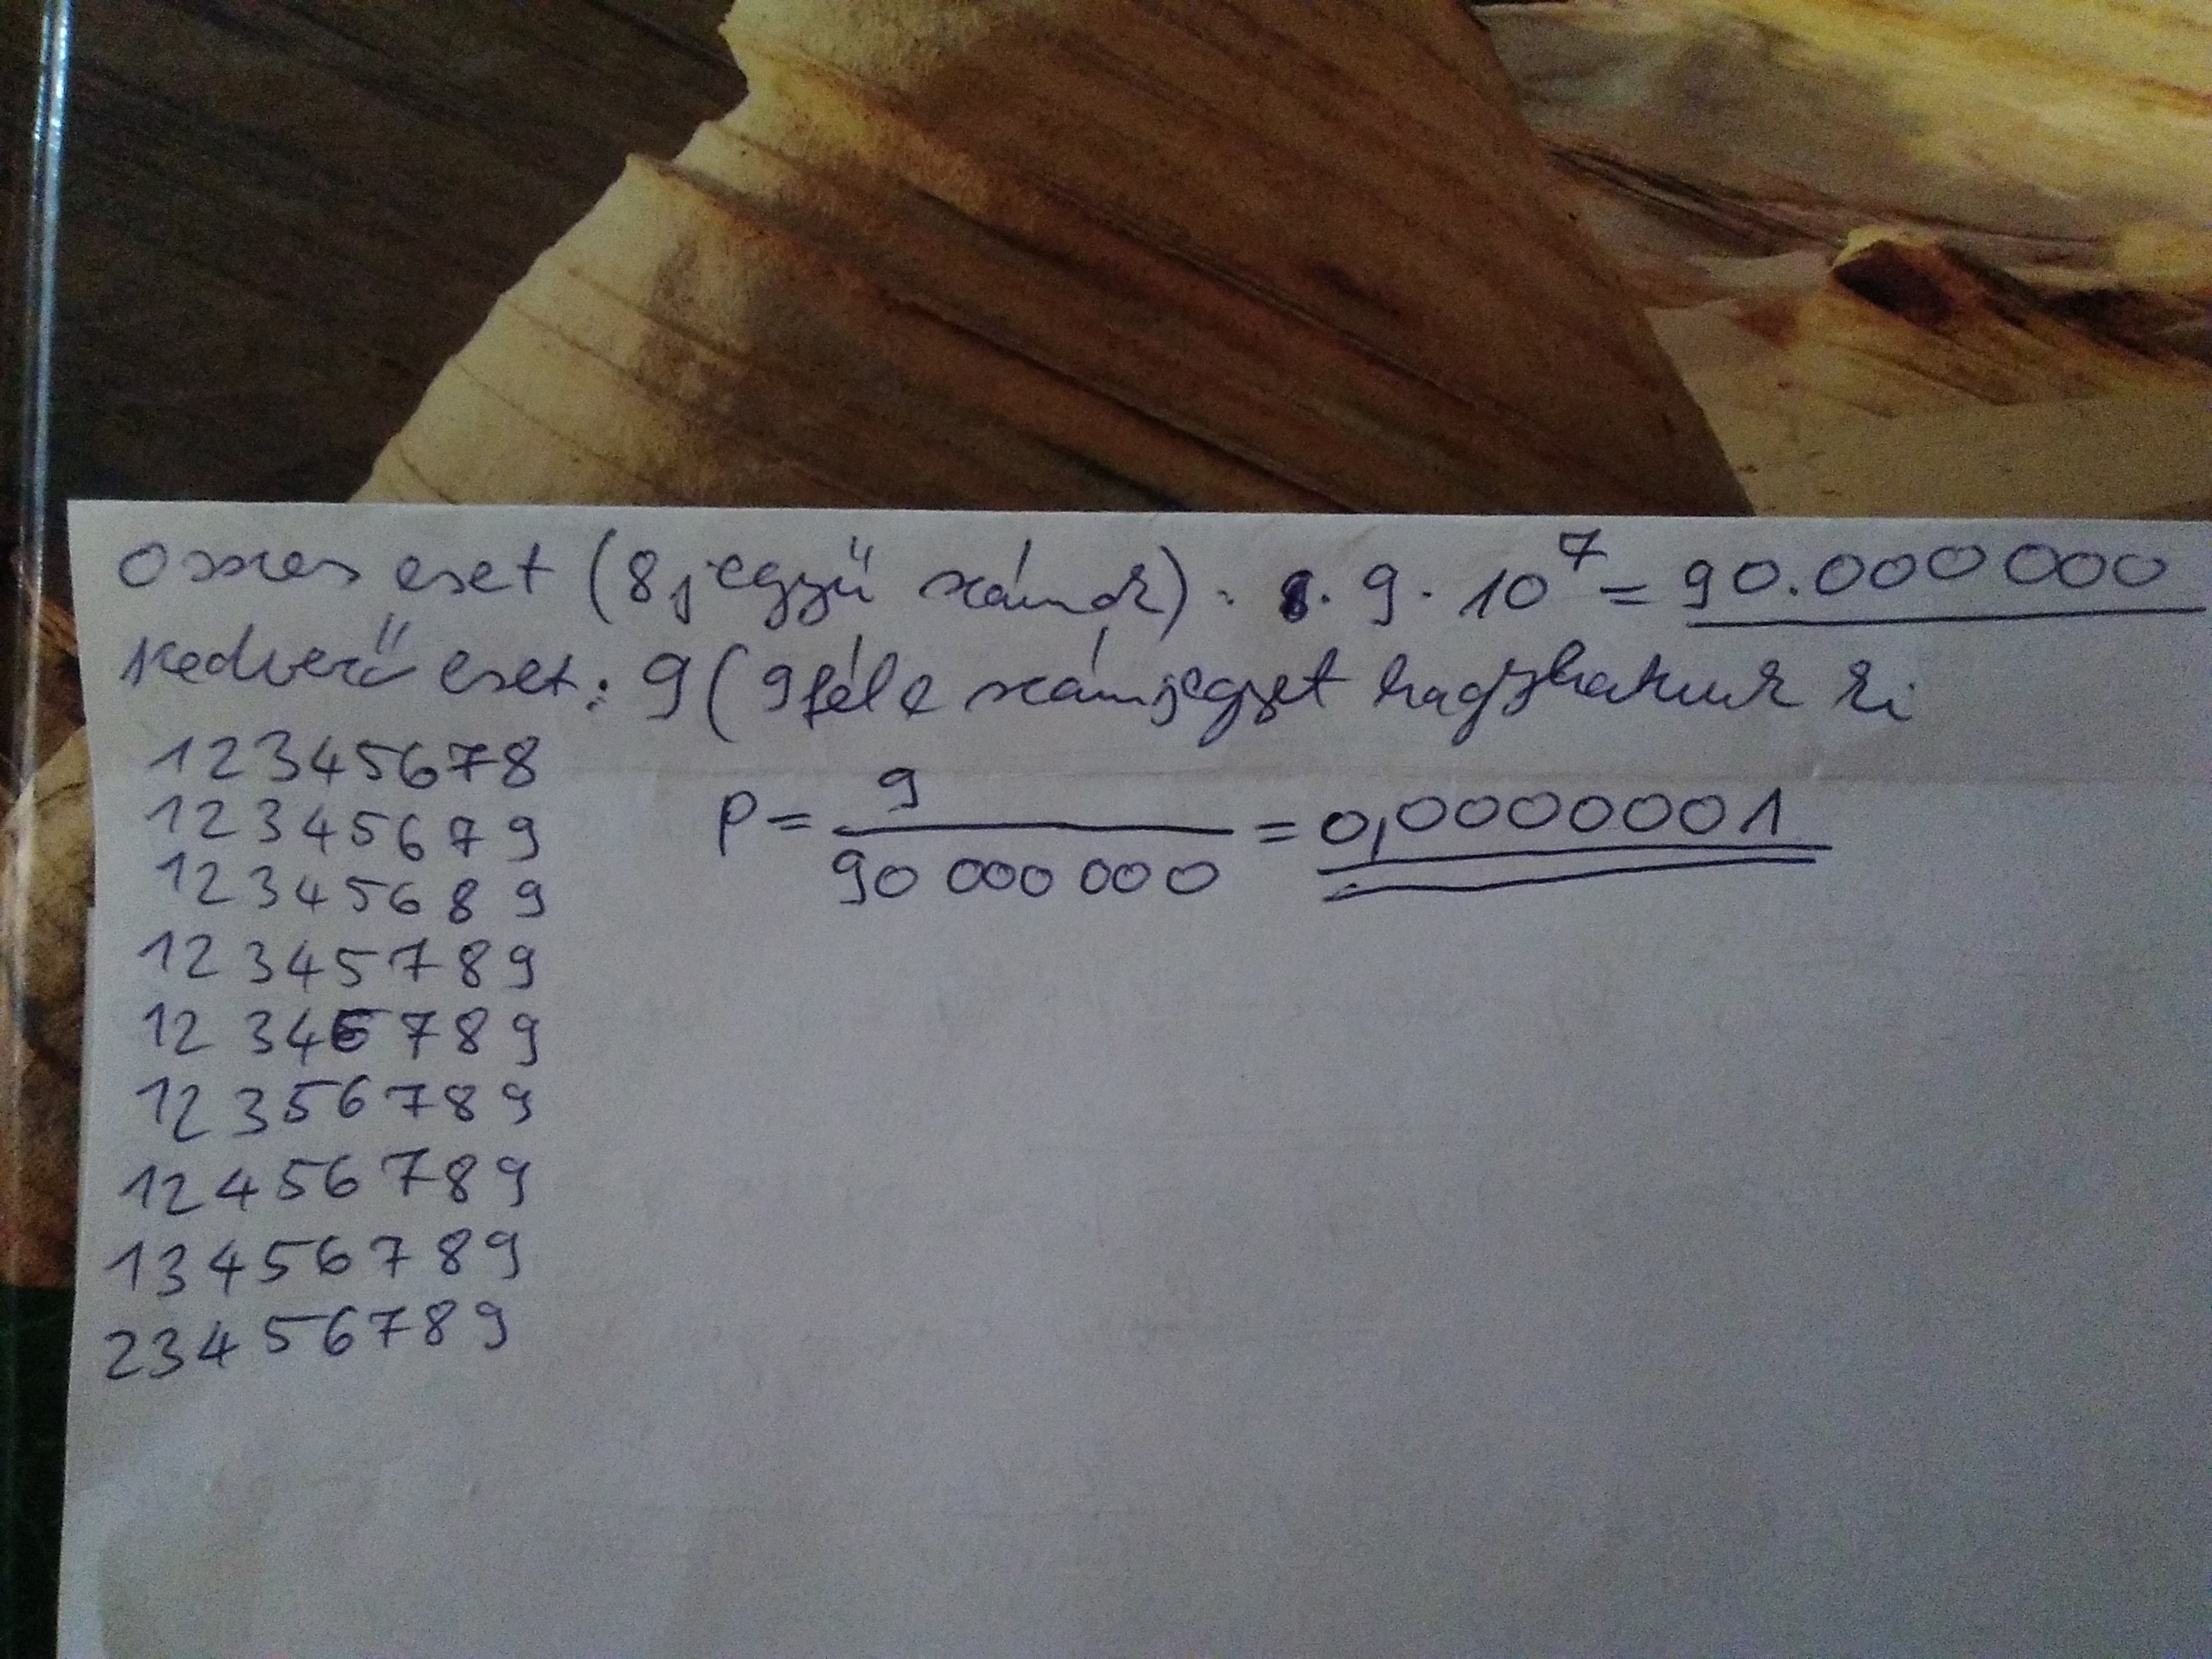 összes eset (8 jegyű számok): 9 · 10⁷ = 90.000 000
Kedvező eset: 9 (9 féle számjegyet hagyhatunk ki
12345678
12345679
12345689
12345789
12346789
12356789
12456789
13456789
23456789
P = 9 / 90 000 000 = 0,0000001